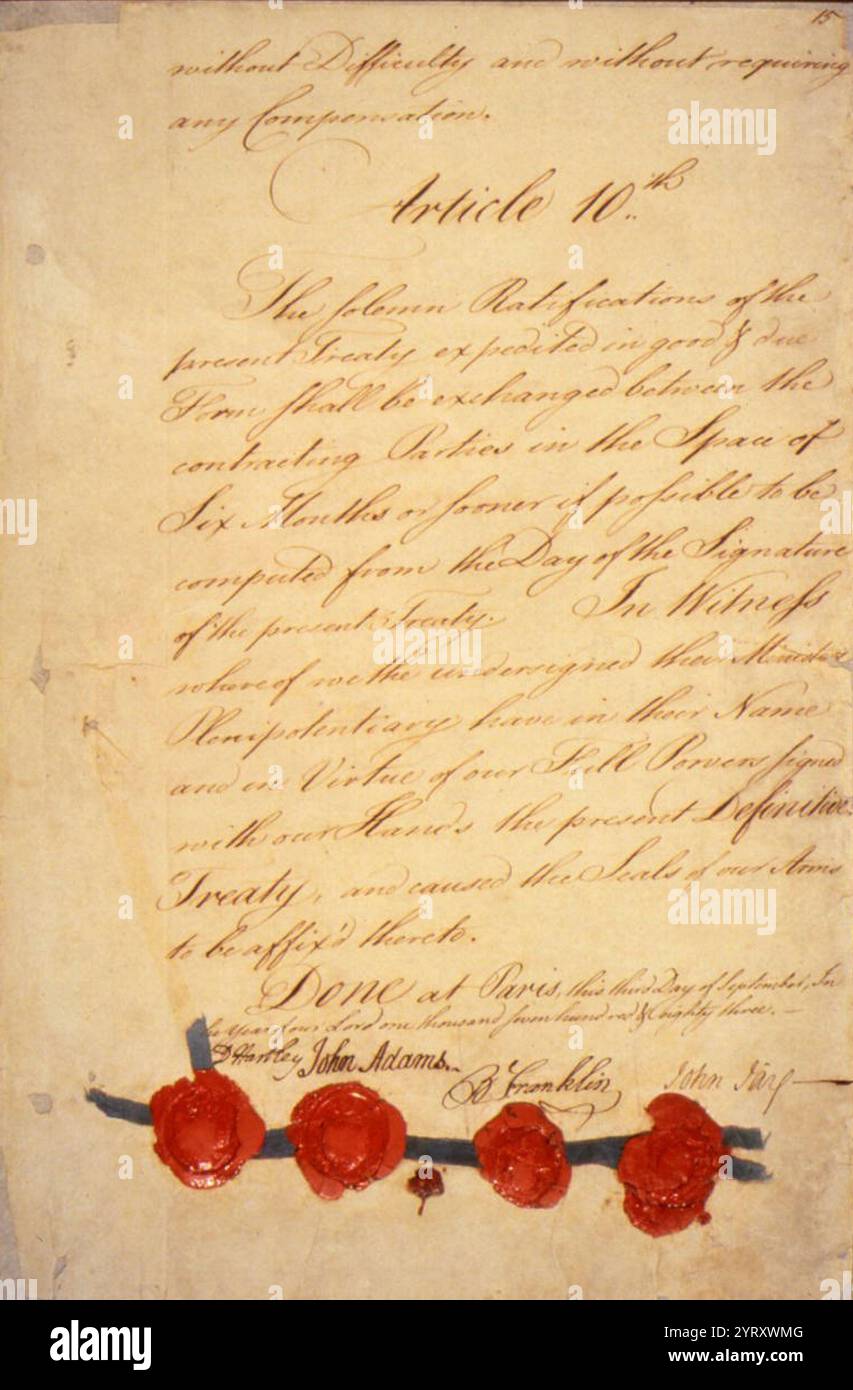 15
without Difficulty and without requiring
any Compensation.
Article 10.th
The solemn Ratifications of the
present Treaty expedited in good & due
Form shall be exchanged between the
contracting Parties in the Space of
Six Months or sooner if possible to be
computed from the Day of the Signature
of the present Treaty. In Witness
whereof we the undersigned their Ministers
Plenipotentiary have in their Name
and in Virtue of our Full Powers signed
with our Hands the present Definitive
Treaty, and caused the Seals of our Arms
to be affix'd thereto.
Done at Paris, this third Day of September, In
the Year of our Lord one thousand seven hundred & eighty three.
D Hartley John Adams. B Franklin John Jay
a a
a
a a a
alamy
a a
a
a a a
alamy
Image ID: 2YRXWMG
www.alamy.com